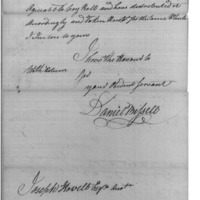 agreeable to Pay Roll and have distributed it
accordingly and taken Receipts for the same which
I Inclose to you
I have the Honour to
be with Esteem
your Obedient Servant
Daniel Bissell
Joseph Howell Esqr